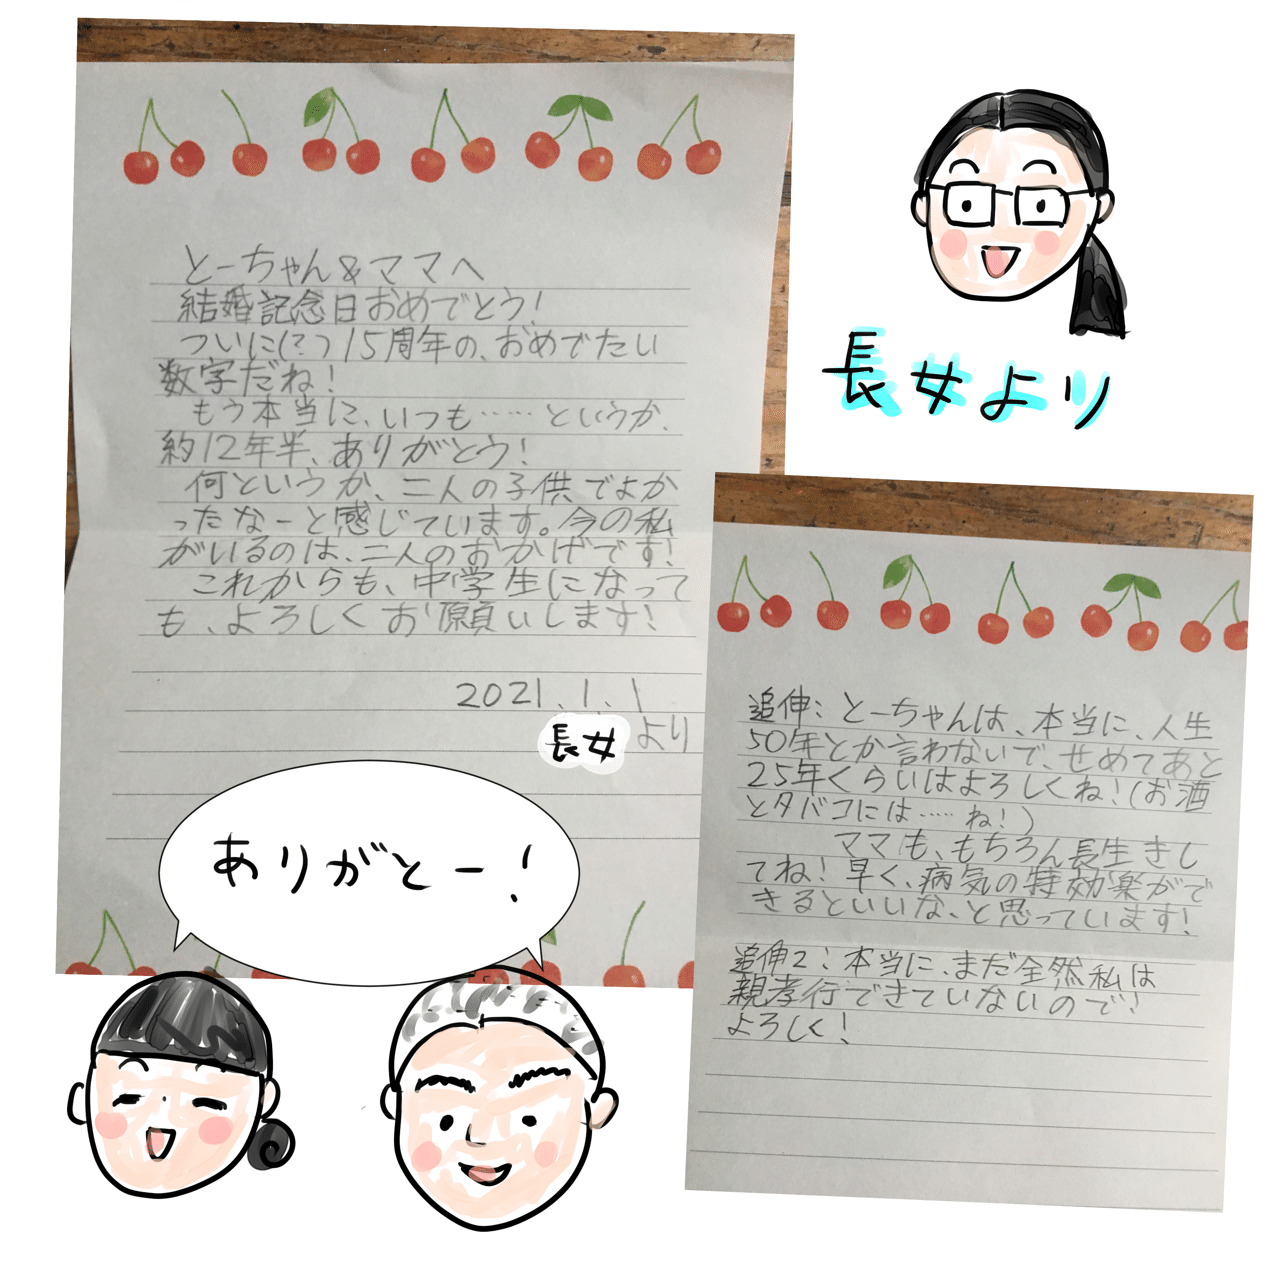 とーちゃん&ママへ
結婚記念日おめでとう!
ついに(?っ)15周年の、おめでたい
数字だね!
もう本当に、いつも……というか、
約12年半、ありがとう!
何というか、二人の子供でよか
ったなーと感じています。今の私
がいるのは、二人のおかげです!
これからも、中学生になって
も、よろしくお願いします!
2021.1.1
長女より
長女より
追伸:とーちゃんは、本当に、人生
50年とか言わないで、せめてあと
25年くらいはよろしくね!(お酒
とタバコには……ね!)
ママも、もちろん長生きし
てね!早く、病気の特効薬がで
きるといいな、と思っています!
追伸2:本当に、まだ全然私は
親孝行できていないので!
よろしく!
ありがとー!